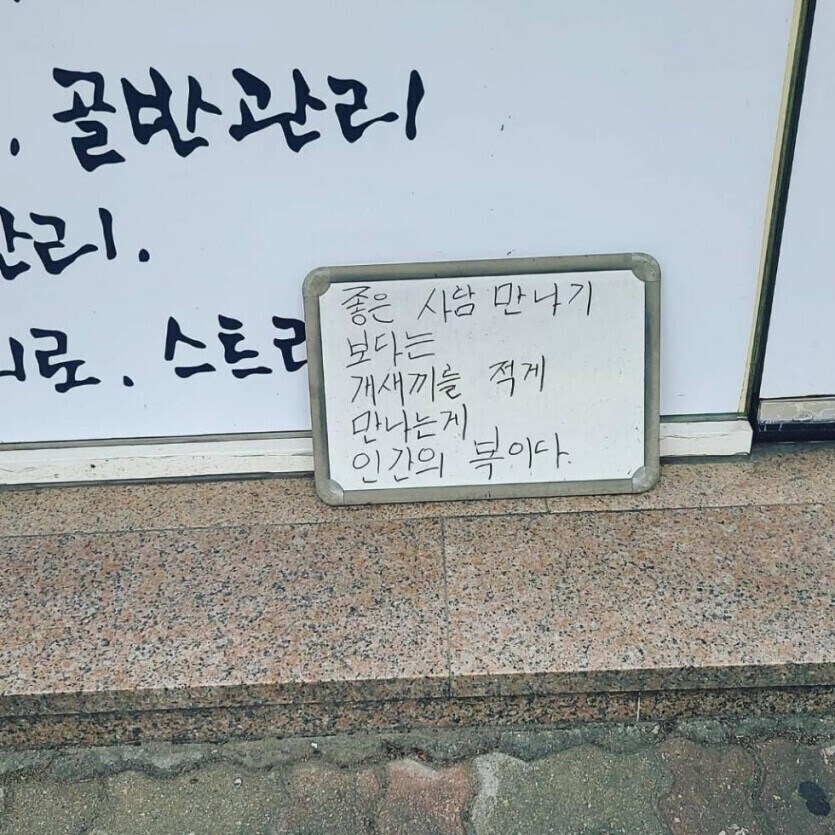 골반관리
관리.
피로. 스트레
좋은 사람 만나기
보다는
개새끼를 적게
만나는게
인간의 복이다.